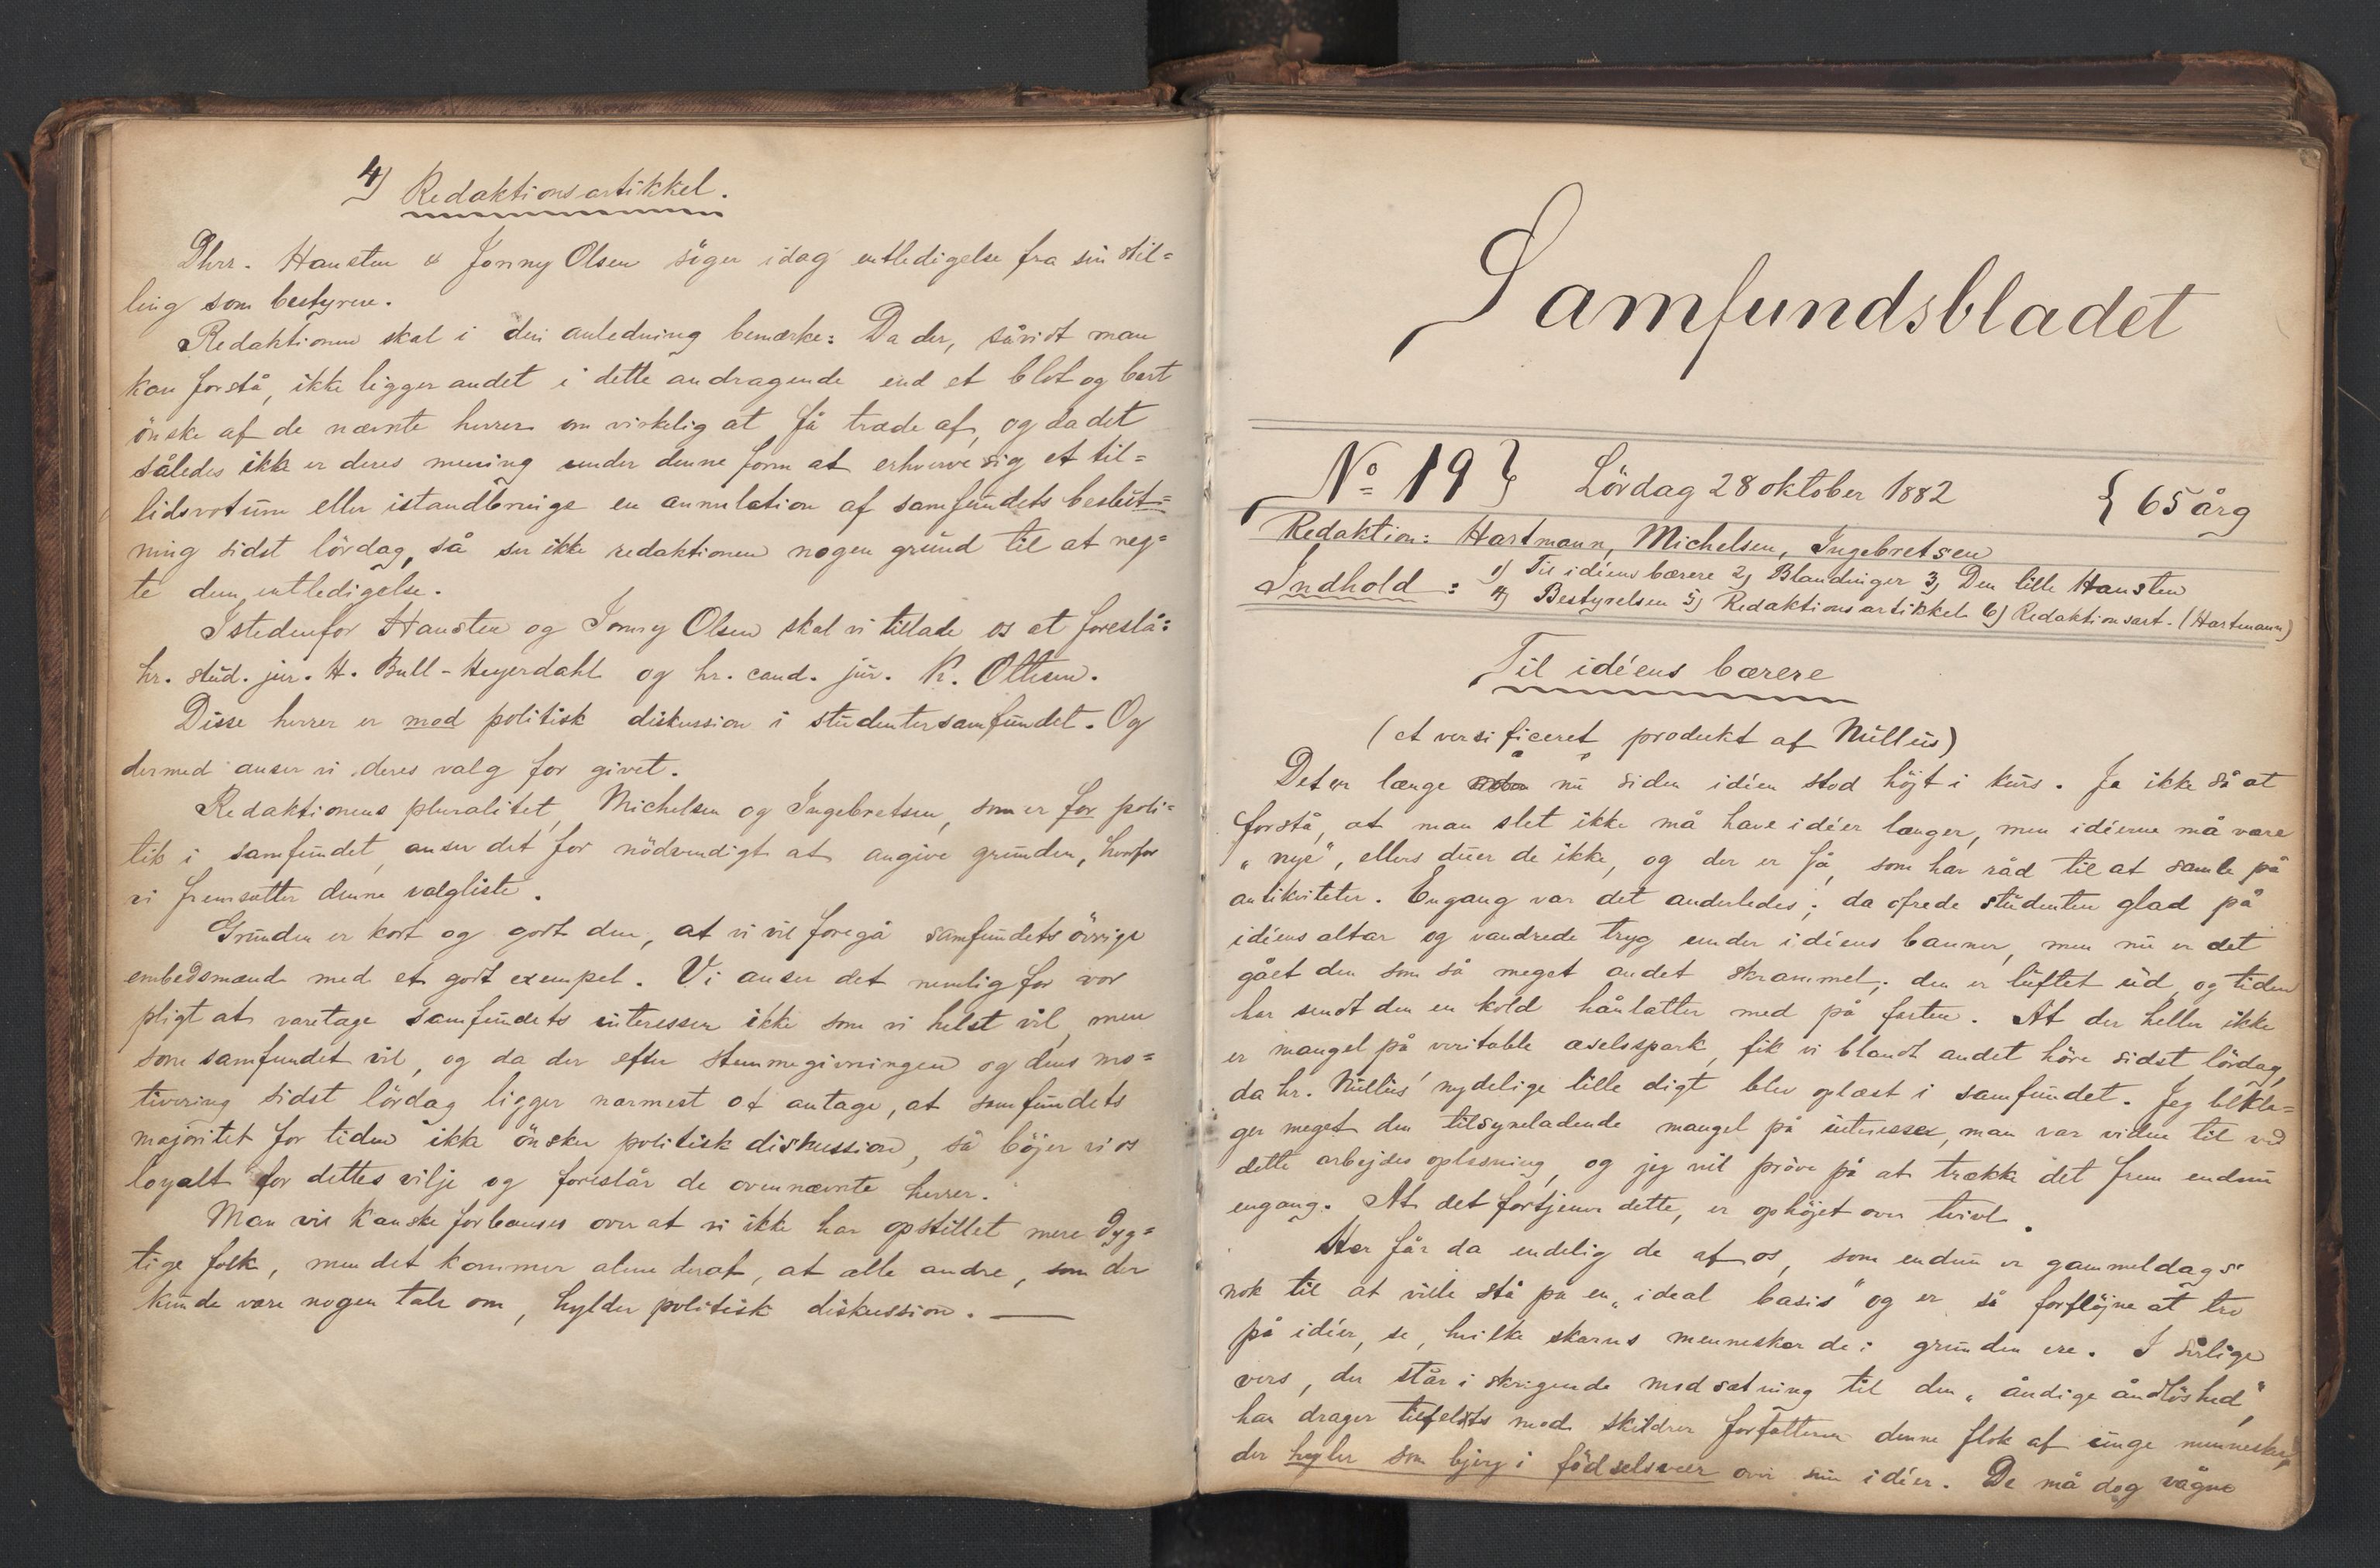 4) Redaktionsartikkel.
Dhrr. Hansten & Jonny Olsen söger idag entledigelse fra sin stil=
ling som bestyrere.
Redaktionen skal i den anledning bemærke: Da der, såvidt man
kan forstå, ikke ligger andet i dette andragende end et blot og bart
önske af de nævnte herrer om virkelig at få træde af, og da det
således ikke er deres mening under denne form at erhverve sig et til=
lidsvotum eller istandbringe en annulation af samfundets beslut=
ning sidst lördag, så ser ikke redaktionen nogen grund til at neg=
te dem entledigelse.
Istedenfor Hansten og Jonny Olsen skal vi tillade os at foreslå:
hr. stud. jur. H. Bull-Heyerdahl og hr. cand. jur. K. Ottesen.
Disse herrer er mod politisk diskussion i studentersamfundet. Og
dermed anser vi deres valg for givet.
Redaktionens pluralitet, Michelsen og Ingebretsen, som er for poli=
tik i samfundet, anser det for nödvendigt at angive grunden, hvorfor
vi fremsætter denne valgliste.
Grunden er kort og godt den, at vi vil foregå samfundets övrige
embedsmænd med et godt exempel. Vi anser det nemlig for vor
pligt at varetage samfundets interesser ikke som vi helst vil, men
som samfundet vil, og da der efter stemmegivningen og dens mo=
tivering sidst lördag ligger nærmest at antage, at samfundets
majoritet for tiden ikke önsker politisk diskussion, så böjer vi os
loyalt for dettes vilje og foreslår de ovennævnte herrer.
Man vil kanske forbauses over at vi ikke har opstillet mere dyg=
tige folk, men det kommer alene deraf, at alle andre, som der
kunde være nogen tale om, hylder politisk diskussion. —
Samfundsbladet
No 19 } Lördag 28 oktober 1882 { 65 årg
Redaktion: Hartmann, Michelsen, Ingebretsen
Indhold: 1) Til idéens bærere 2) Blandinger 3) Den lille Hansten
4) Bestyrelsen 5) Redaktionsartikkel 6) Redaktionsart. (Hartmann)
Til idéens bærere
(et versificeret produkt af Nullus)
Det er længe nu siden idéen stod höjt i kurs. Ja ikke så at
forstå, at man slet ikke må have idéer længer, men idéerne må være
"nye", ellers duer de ikke, og der er få, som har råd til at samle på
antikviteter. Engang var det anderledes; da ofrede studenten glad på
idéens altar og vandrede tryg under idéens banner, men nu er det
gået den som så meget andet skrammel; den er luftet ud, og tiden
har sendt den en kold hånlatter med på farten. At der heller ikke
er mangel på veritable æselsspark, fik vi blandt andet höre sidst lördag,
da hr. Nullus' nydelige lille digt blev oplæst i samfundet. Jeg bekla=
ger meget den tilsyneladende mangel på interesse, man var vidne til ved
dette arbejdes oplæsning, og jeg vil pröve på at trække det frem endnu
engang. At det fortjener dette, er ophöjet over tvivl.
Her får da endelig de af os, som endnu er gammeldags
nok til at ville stå på en "ideal basis" og er så forflöjne at tro
på idéer, se, hvilke skarns mennesker de i grunden ere. I sirlige
vers, der står i skrigende modsætning til den "åndige åndlöshed",
han drager tilfelts mod, skildrer forfatteren denne flok af unge mennesker,
der hyler som bjerg i födselsveer over sine idéer. De må dog vågne